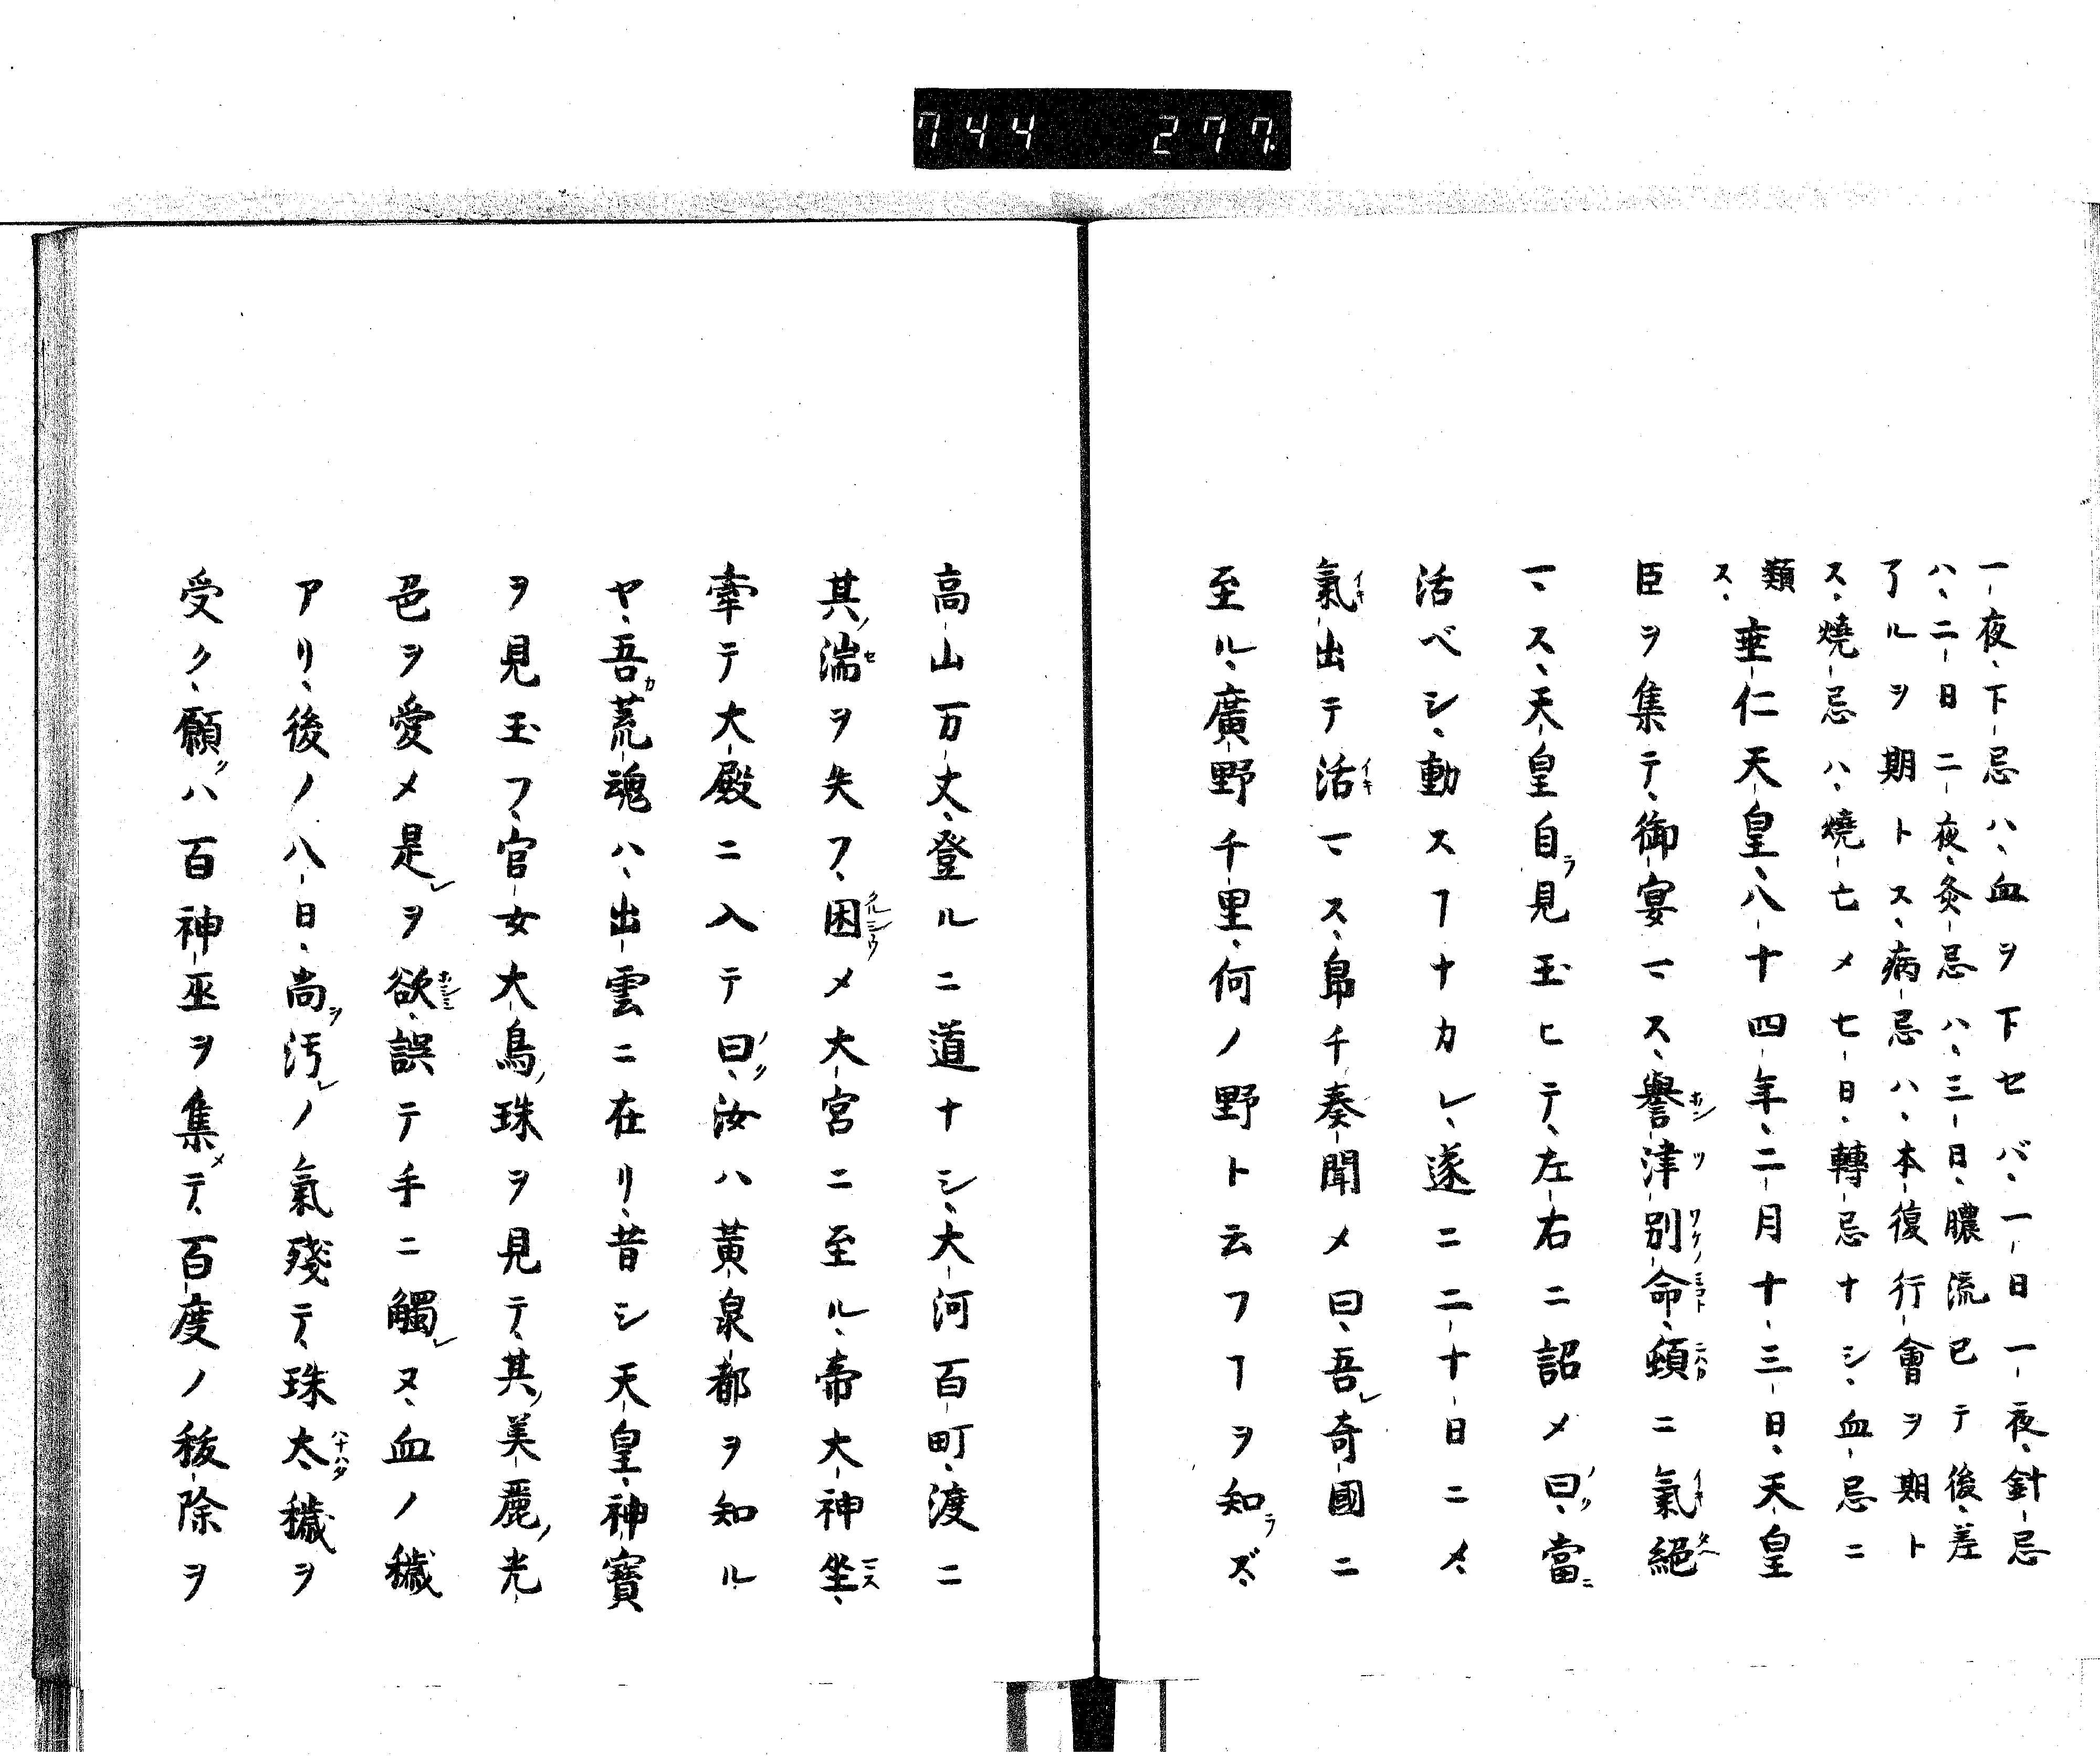 744 277
一夜、下忌ハ、血ヲ下セバ、一日一夜、針忌
ハ、二日二夜、灸忌ハ、三日、膿流已テ後、差
了ルヲ期トス、病忌ハ、本復行會ヲ期ト
ス、燒忌ハ、燒七〆七日、轉忌ナシ、血忌ニ
類ス、
垂仁天皇、八十四年、二月十三日、天皇
臣ヲ集テ、御宴マス、譽津別命、頓ニ氣絕
マス、天皇自ラ見玉ヒテ、左右ニ詔〆曰ク、當ニ
活ベシ、動スヿナカレ、遂ニ二十日ニ〆、
氣出テ活マス、皈チ奏聞〆曰、吾レ奇國ニ
至ル、廣野千里、何ノ野ト云フヿヲ知ラズ、
高山万丈、登ルニ道ナシ、大河百町、渡ニ
其ノ湍ヲ失フ、困〆大宮ニ至ル、帝大神坐マス、
牽テ大殿ニ入テ曰ク、汝ハ黃泉都ヲ知ル
ヤ、吾カ荒魂ハ、出雲ニ在リ、昔シ天皇、神寶
ヲ見玉フ、官女大鳥ノ珠ヲ見テ、其ノ美麗ノ光
色ヲ愛〆是レヲ欲、誤テ手ニ觸レヌ、血ノ穢
アリ、後ノ八日、尚ヲ汚レノ氣殘テ、珠太穢ヲ
受ク、願クハ百神巫ヲ集メテ、百度ノ秡除ヲ